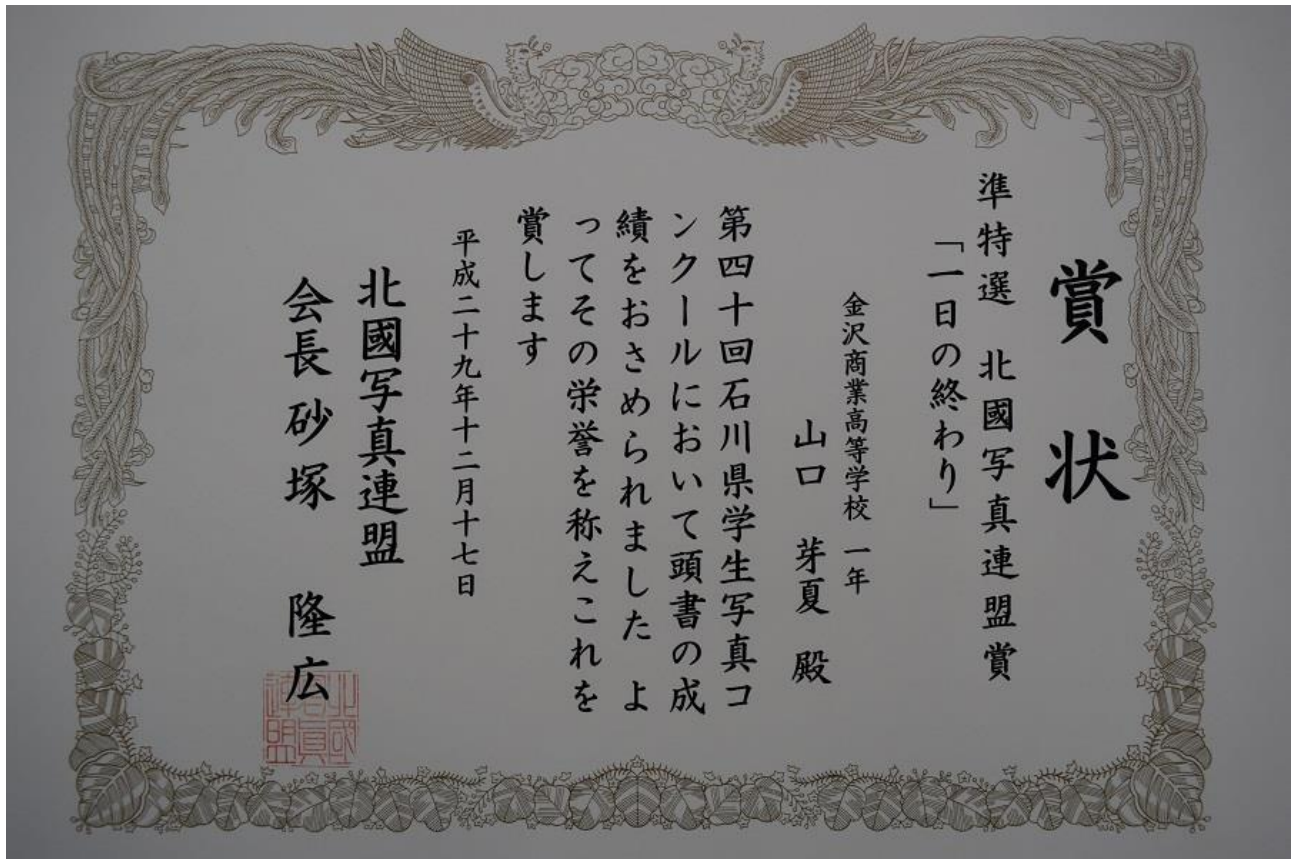 賞状
準特選　北國写真連盟賞
「一日の終わり」
金沢商業高等学校　一年
山口　芽夏　殿
第四十回石川県学生写真コ
ンクールにおいて頭書の成
績をおさめられました　よ
ってその栄誉を称えこれを
賞します
平成二十九年十二月十七日
北國写真連盟
会長　砂塚　隆広
北國写真連盟